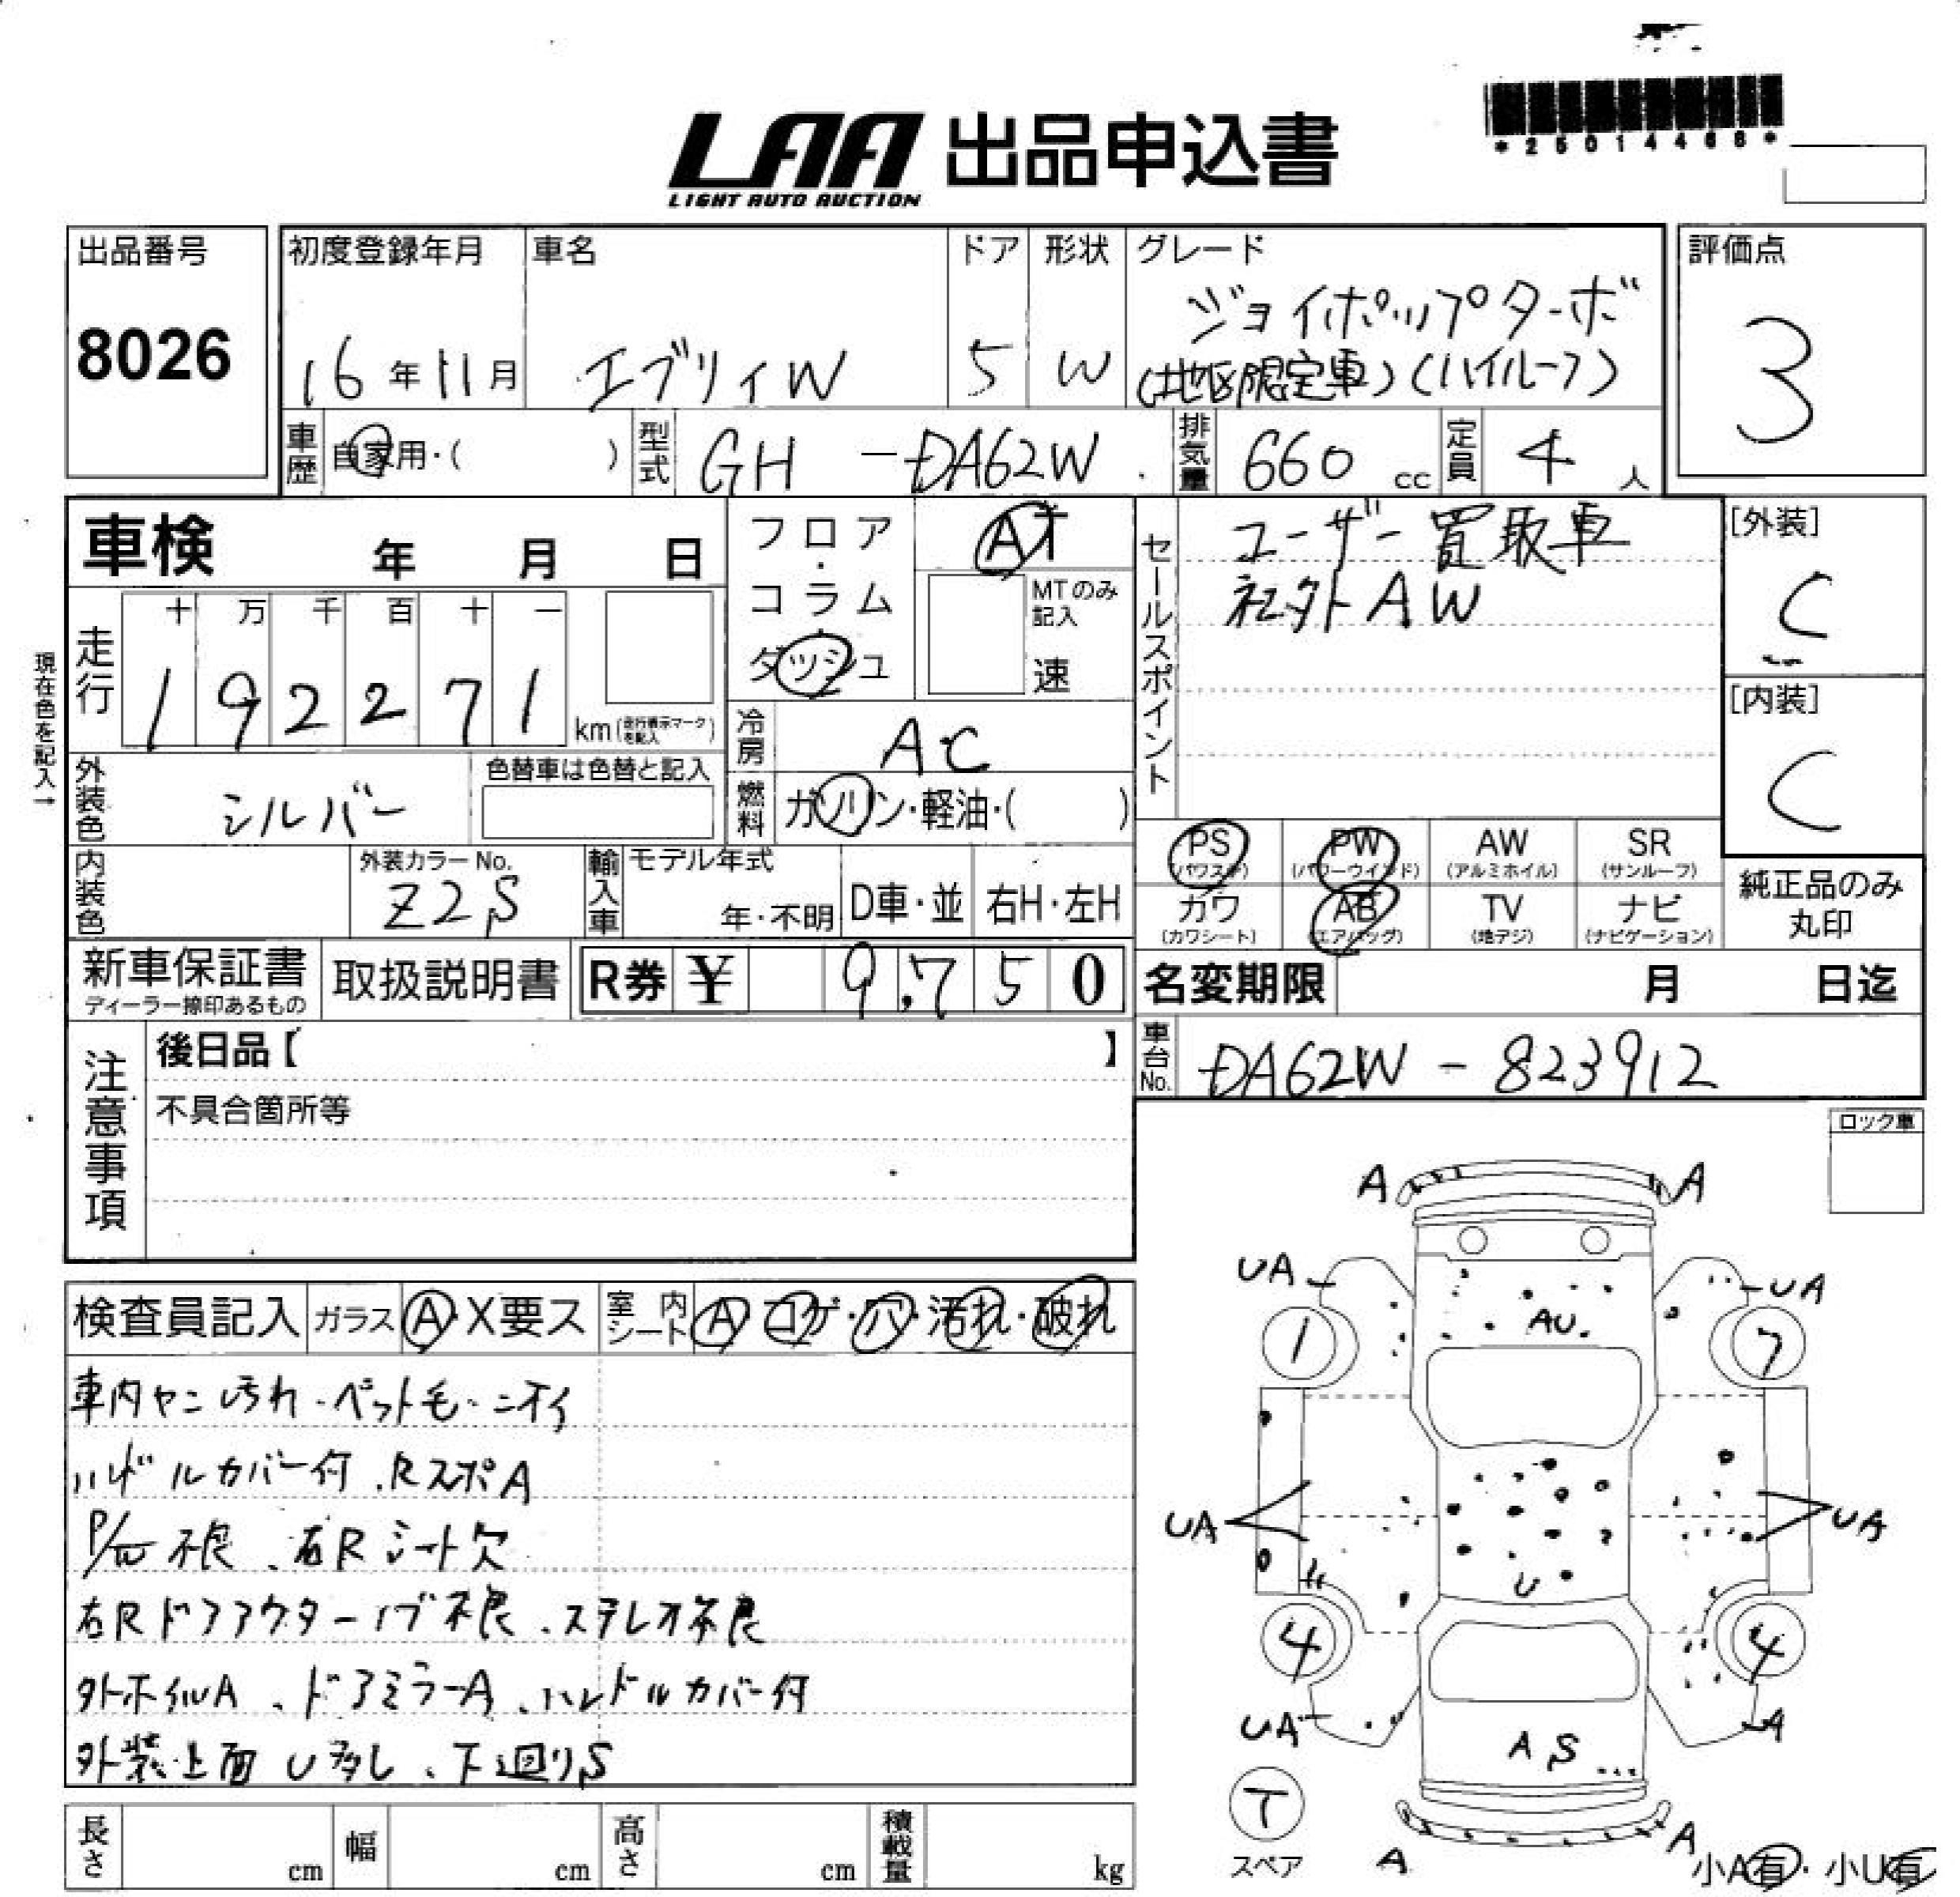 *25014468*
LAA 出品申込書
LIGHT AUTO AUCTION
出品番号
8026
初度登録年月
16年11月
車名
エブリィW
ドア
5
形状
W
グレード
ジョイポップターボ
(地区限定車)(ハイルーフ)
評価点
3
車歴
自家用・( )
型式
GH-DA62W
排気量
660 cc
定員
4 人
車検 年 月 日
現在色を記入→
走行
十 万 千 百 十 一
1 9 2 2 7 1
km(走行表示マークを記入)
フロア・コラム・ダッシュ
AT
MTのみ記入
速
冷房
AC
燃料
ガソリン・軽油・( )
外装色
シルバー
色替車は色替と記入
内装色
外装カラーNo.
Z2S
輸入車
モデル年式
年・不明
D車・並
右H・左H
新車保証書
ディーラー捺印あるもの
取扱説明書
R券 ¥ 9,750
セールスポイント
ユーザー買取車
社外AW
[外装]
C
[内装]
C
PS
(パワステ)
PW
(パワーウインド)
AW
(アルミホイル)
SR
(サンルーフ)
カワ
(カワシート)
AB
(エアバッグ)
TV
(地デジ)
ナビ
(ナビゲーション)
純正品のみ
丸印
名変期限 月 日迄
車台No.
DA62W-823912
注意事項
後日品【 】
不具合箇所等
ロック車
検査員記入
ガラス
A・X要ス
室内シート
A コゲ・穴・汚れ・破れ
車内ヤニ汚れ・ペット毛・ニオイ
ハンドルカバー付、Rスポ A
P/W不良、右Rシート欠
右Rドアアウターノブ不良、ステレオ不良
外ホイルA、ドアミラーA、ハンドルカバー付
外装上面U多し、下廻りS
A A
UA UA
AU
1 7
UA UA
U
4 4
UA A
A S
T
スペア
A A
小A有・小U有
長さ cm
幅 cm
高さ cm
積載量 kg